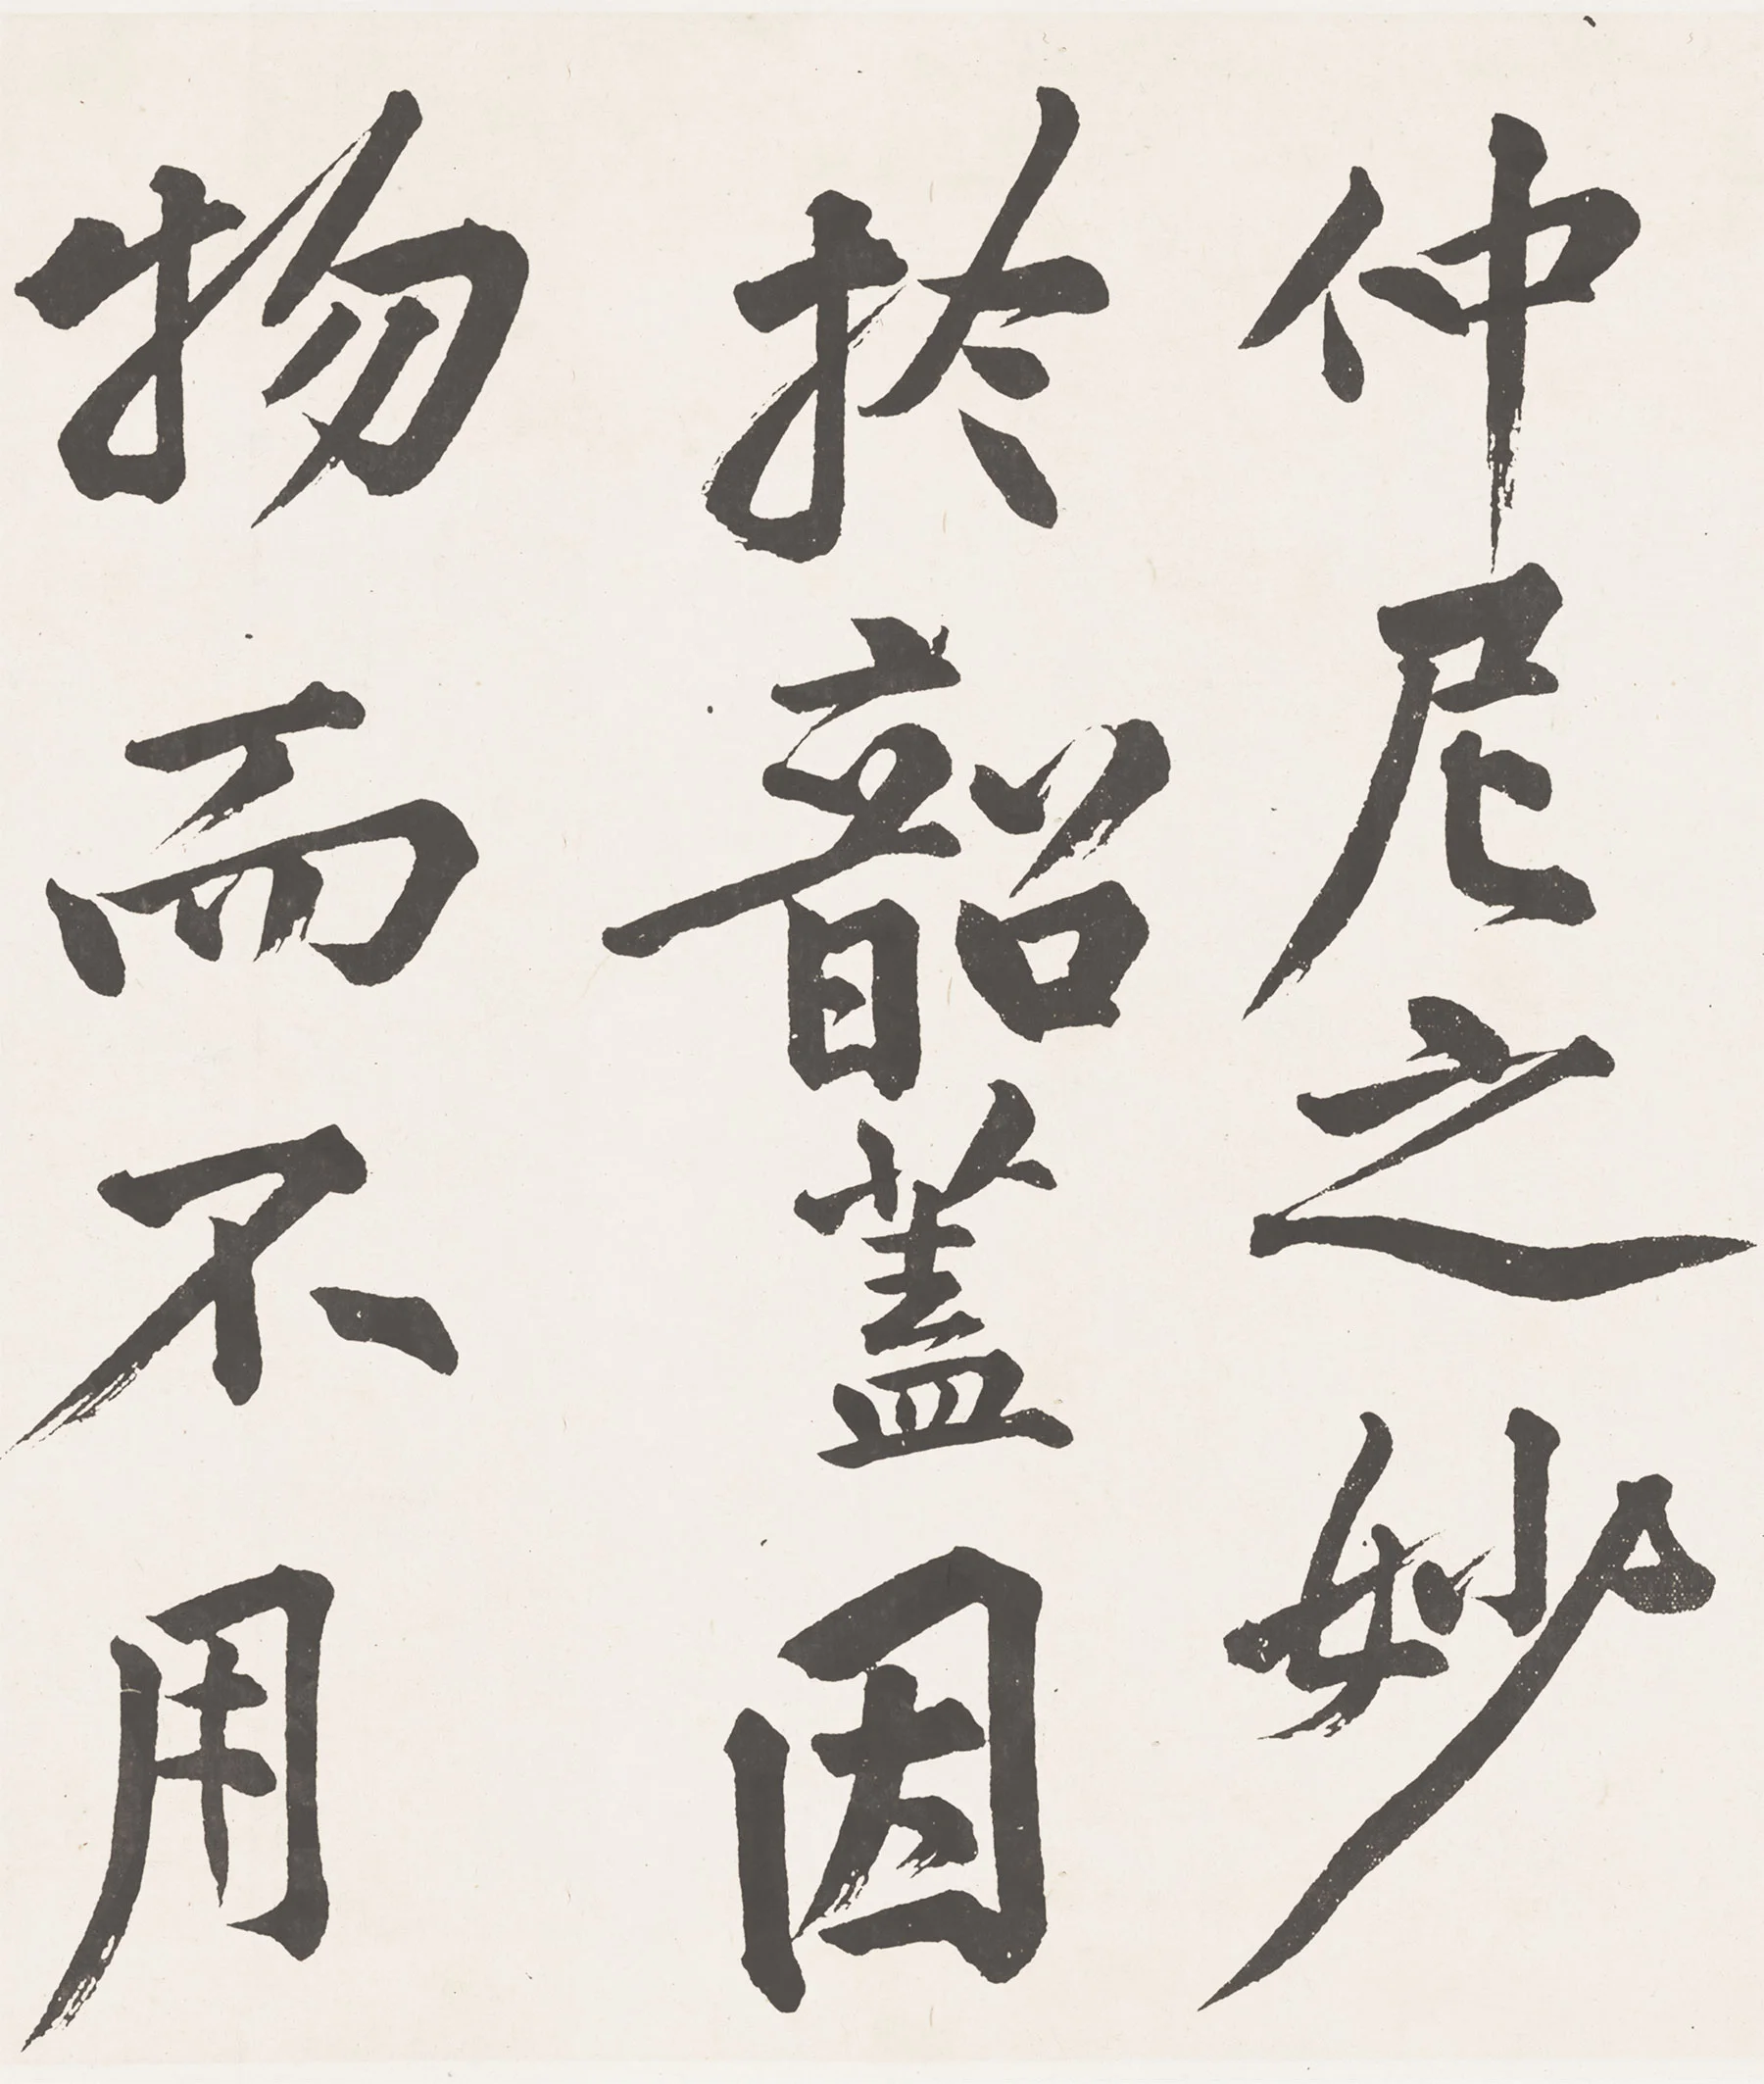 仲尼之妙
於韶蓋因
物而不用